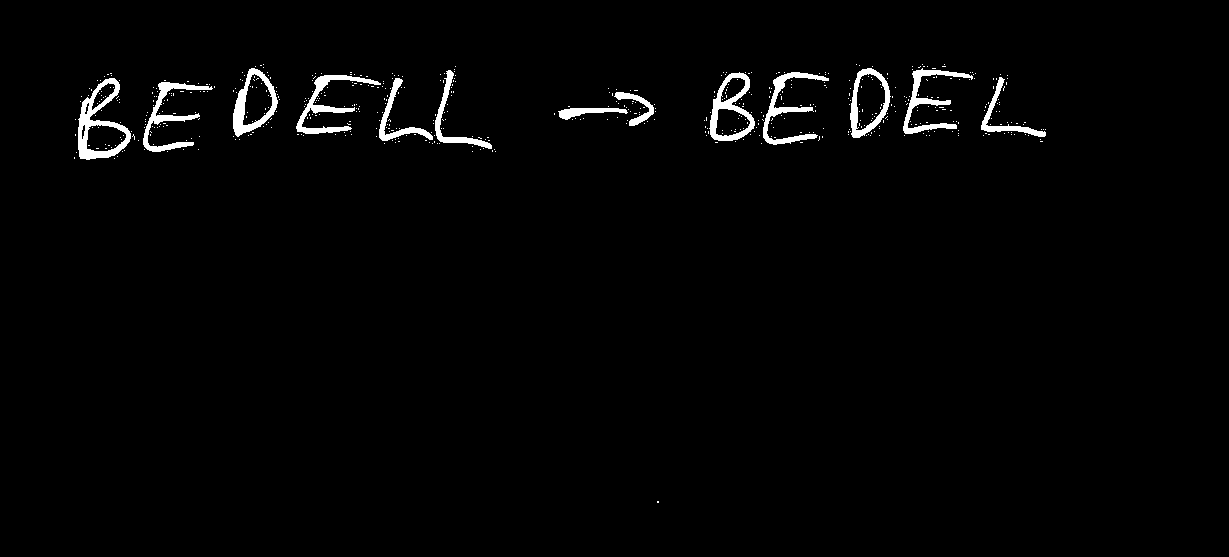 BEDELL → BEDEL